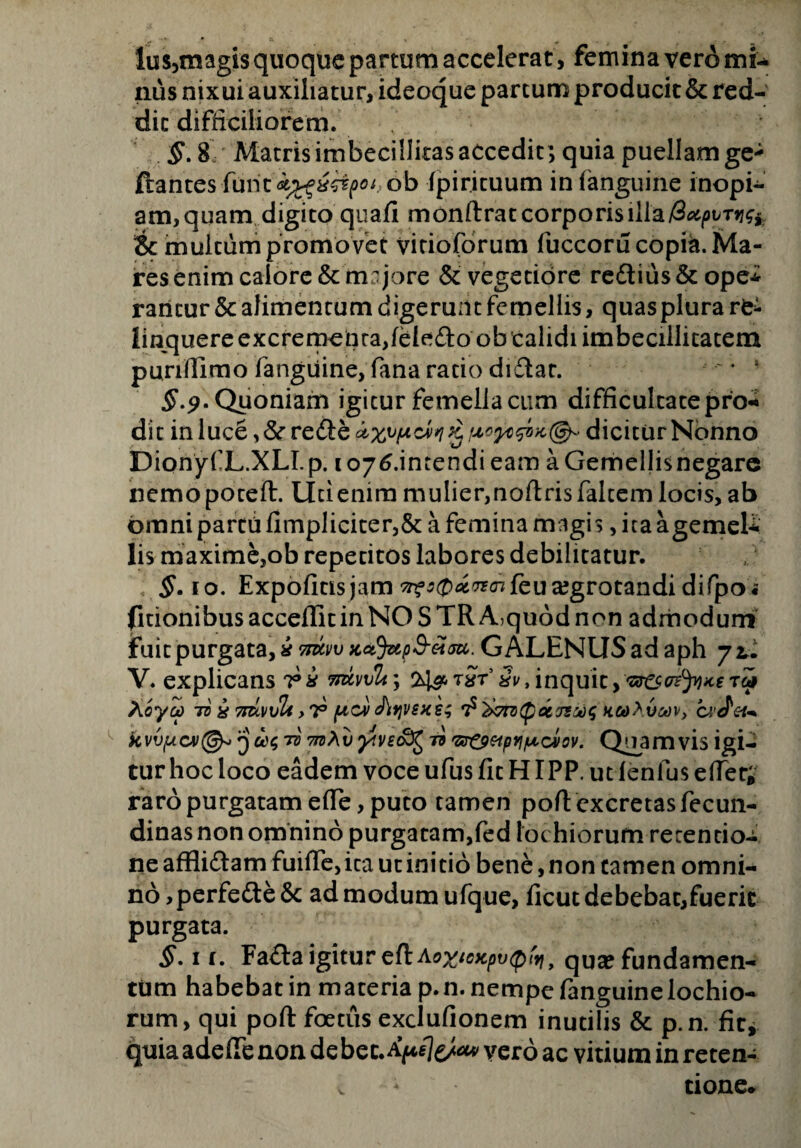 lus,magis quoque partum accelerat, femina verò mi-
nùs nixui auxiliatur, ideoque partum producit & red-
dit difficiliorem.
§. 8. Matris imbecillitas accedit; quia puellam ge-
stantes sunt ἀχρέστεροι, ob spirituum in sanguine inopi-
am, quam digito quasi monstrat corporis illa βαρυτης,
& multùm promovet vitiosorum succorū copia. Ma-
res enim calore & majore & vegetiore rectiùs & ope-
rantur & alimentum digerunt femellis, quas plura re-
linquere excrementa, selecto ob calidi imbecillitatem
purissimo sanguine, sana ratio dictat.
§.9. Quoniam igitur femella cum difficultate pro-
dit in lucē, & rectè ἀχυμένη καὶ μογοςόκ@ dicitur Nonno
Dionys.L.XLI. p. 1076. intendi eam à Gemellis negare
nemo potest. Uti enim mulier, nostris saltem locis, ab
omni partu simpliciter, & à femina magis, ita à gemel-
lis maximè, ob repetitos labores debilitatur.
§. 10. Expositis jam προφάσεσι seu ægrotandi dispo-
sitionibus accessit in NOSTRA, quòd non admodum
fuit purgata, ȣ πάνυ καθαρθεῖσα. GALENUS ad aph 72.
V. explicans τὸ ȣ πάνυτι; Διὰ τȣτ' ȣν, inquit, προσέθηκε τῷ
λόγῳ τὸ ȣ πάνυτι, τὸ μὲν διηνεκὲς τ ἀποφάσεως κωλύων, ἐνδει-
κνύμεν@ δὲ ὡς τὸ πολὺ γίνεσθαι τὸ προειρημένον. Quamvis igi-
tur hoc loco eâdem voce usus sit HIPP. ut sensus esset,
rarò purgatam esse, puto tamen post excretas secun-
dinas non omninò purgatam, sed lochiorum retentio-
ne afflictam fuisse, ita ut initiò benè, non tamen omni-
nò, perfectè & ad modum usque, sicut debebat, fuerit
purgata.
§. 11. Facta igitur est λοχιοκρυφίη, quæ fundamen-
tum habebat in materia p. n. nempe sanguine lochio-
rum, qui post fœtûs exclusionem inutilis & p. n. fit,
quia adesse non debet. verò ac vitium in reten-
tione.